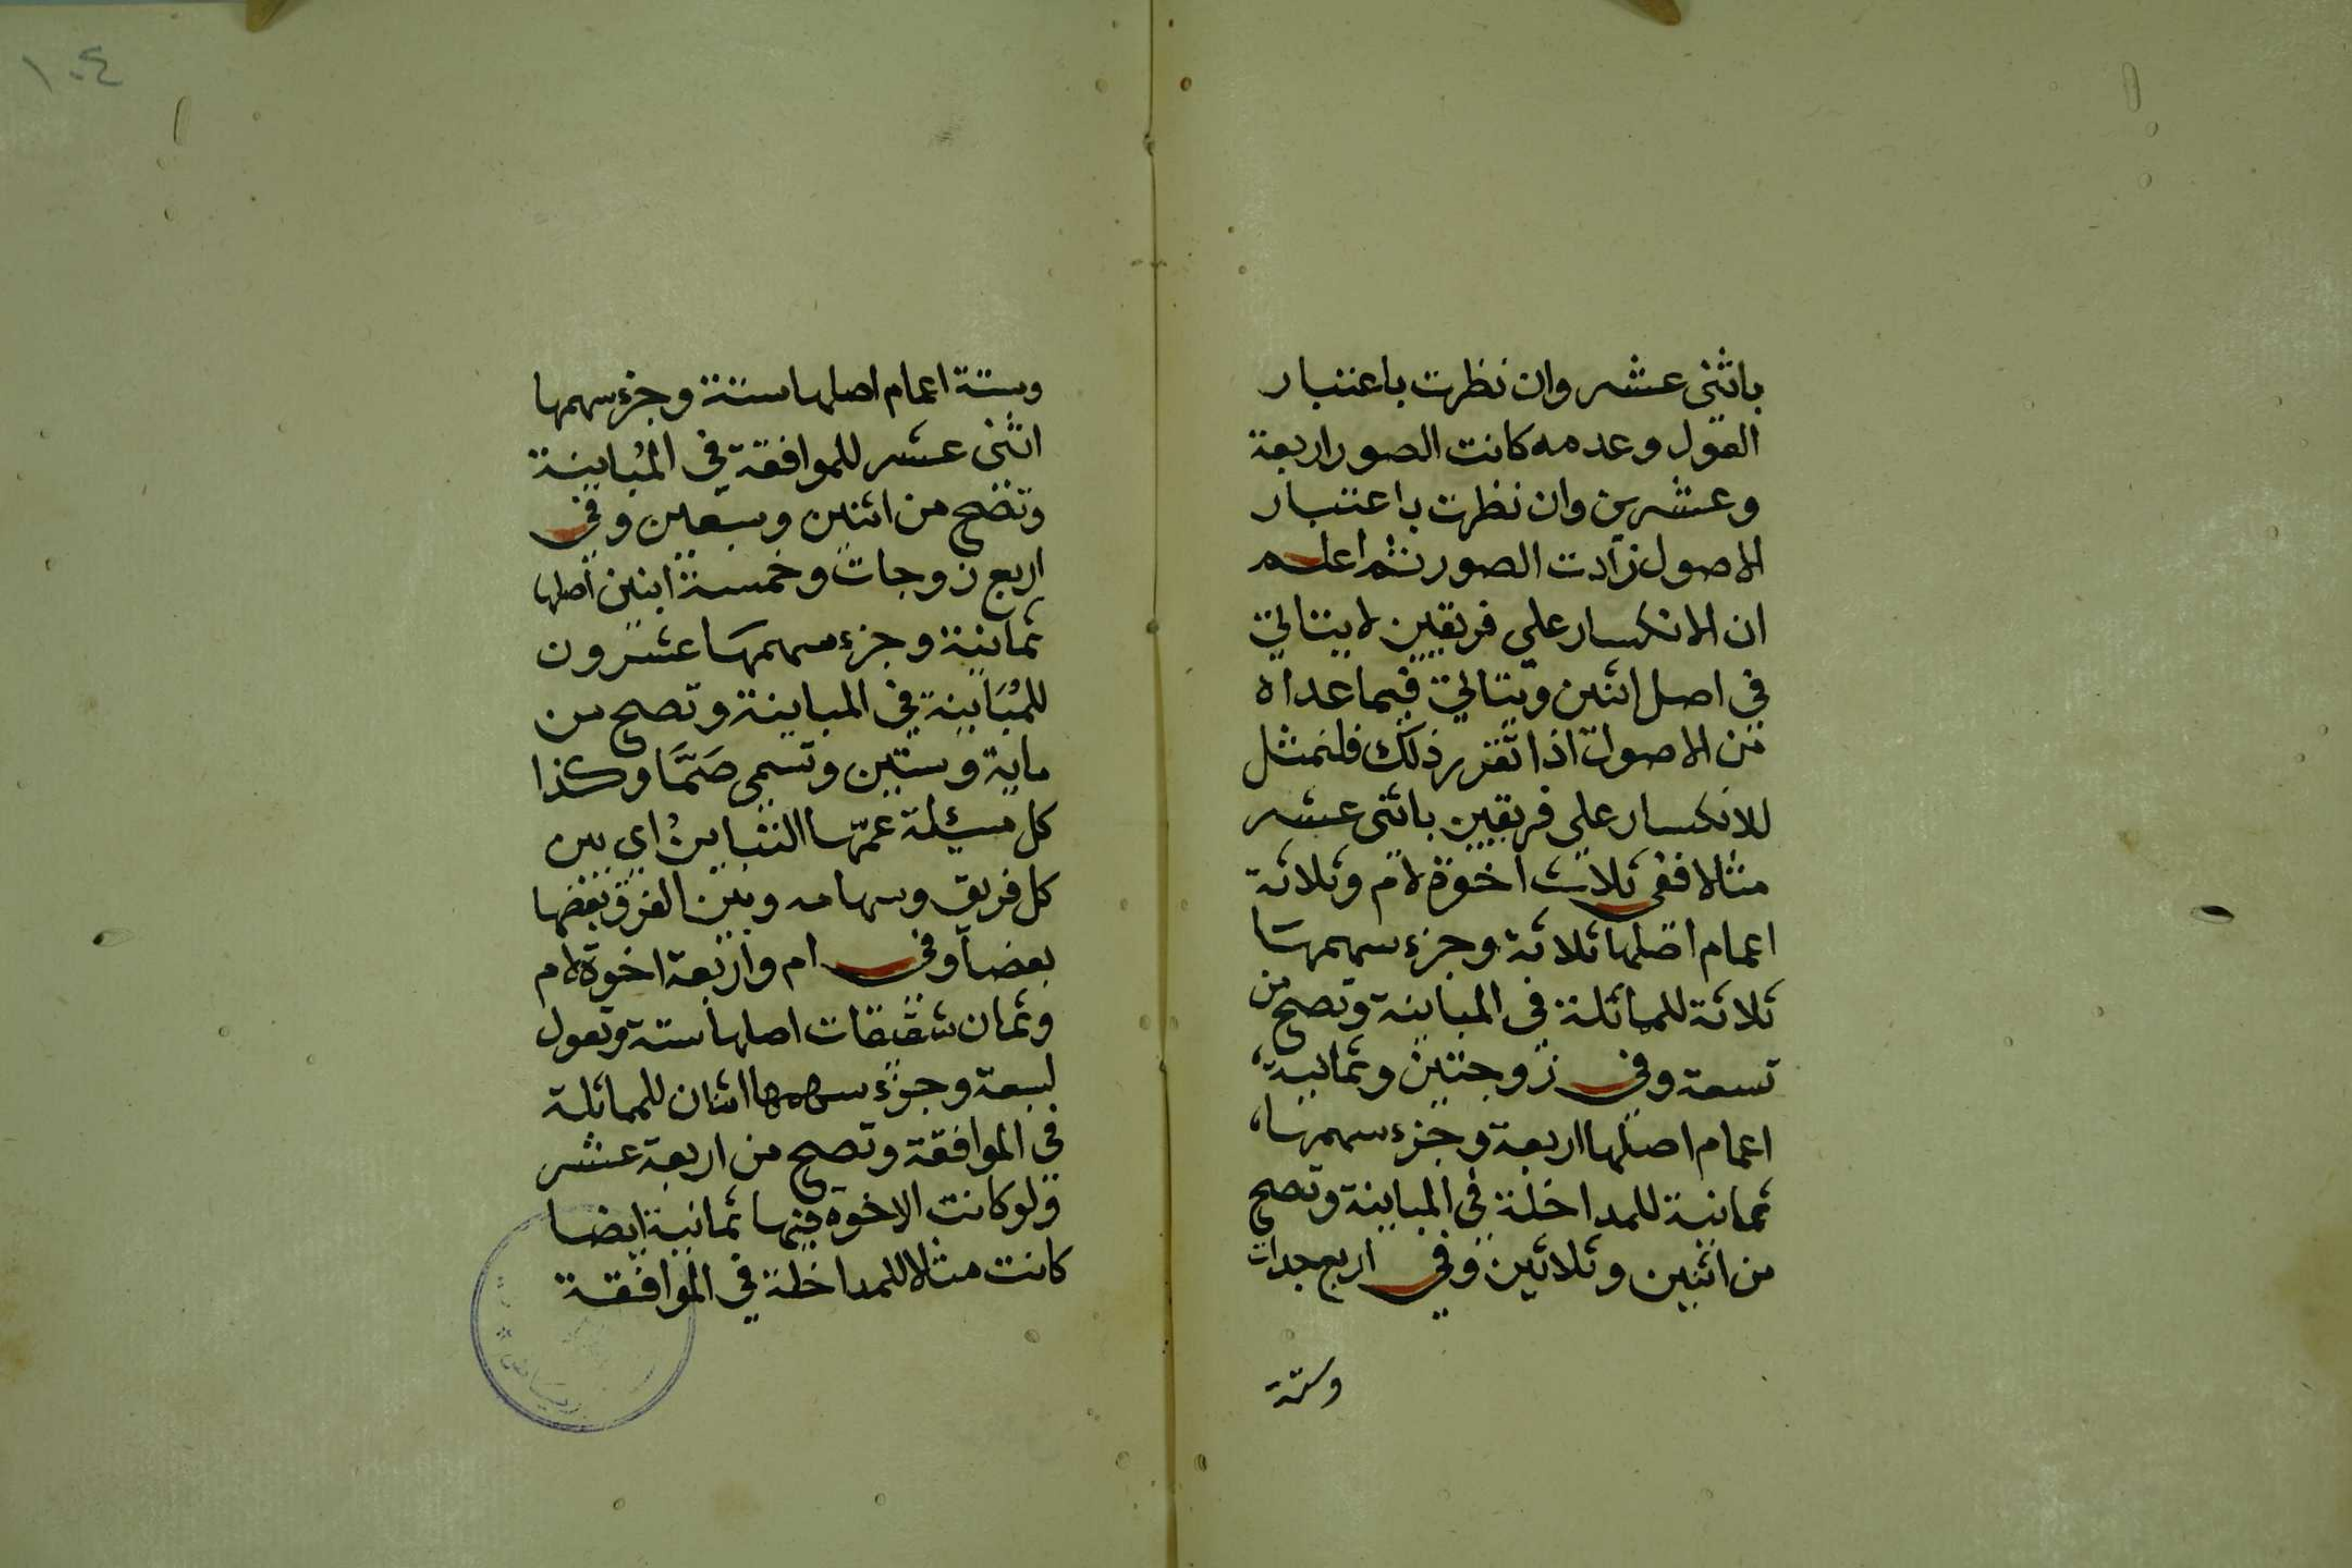 ١٠٤
باثنى عشر وان نظرت باعتبار
العول وعدمه كانت الصور اربعة
وعشرين وان نظرت باعتبار
الاصول زادت الصور ثم اعلم
ان الانكسار علي فريقين لا يتاتي
في اصل اثنين ويتاتي فيما عداه
من الاصول اذا تقرر ذلك فلنمثل
للانكسار علي فريقين باثنى عشر
مثالا ففي ثلاث اخوة لام وثلاثة
اعمام اصلها ثلاثة وجزء سهمها
ثلاثة للمماثلة في المباينة وتصح من
تسعة وفي زوجتين وثمانية
اعمام اصلها اربعة وجزء سهمها
ثمانية للمداخلة في المباينة وتصح
من اثنين وثلاثين وفي اربع جدات
وستة
وستة اعمام اصلها ستة وجزء سهمها
اثنى عشر للموافقة في المُباينة
وتصح من اثنين وسبعين وفي
اربع زوجات وخمسة ابنين اصلها
ثمانية وجزء سهمها عشرون
للمُبَاينة في المباينة وتصح من
ماية وستين وتسمى صَمَّا وكذا
كل مسئلة عمّها التباينُ اي بين
كل فريق وسهامه وبين الفرق بعضها
بعضا وفي ام واربعة اخوة لام
وثمان شقيقات اصلها ستة وتعول
لسبعة وجزء سهمها اثنان للمماثلة
في الموافقة وتصح من اربعة عشر
ولو كانت الاخوة فيها ثمانية ايضا
كانت مثالا للمداخلة في الموافقة